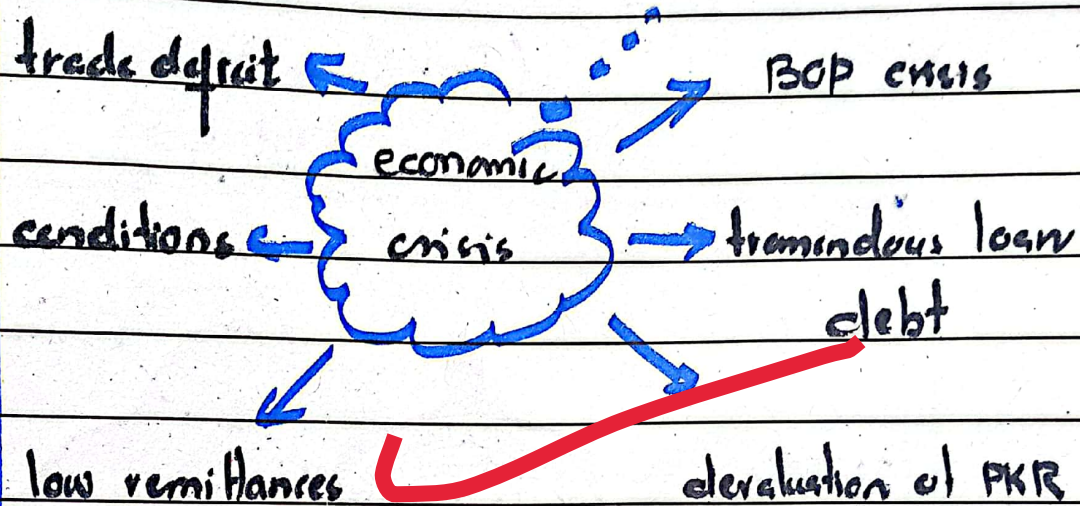 trade deficit
BOP crisis
economic
crisis
conditions
tremendous loan
debt
low remittances
devaluation of PKR